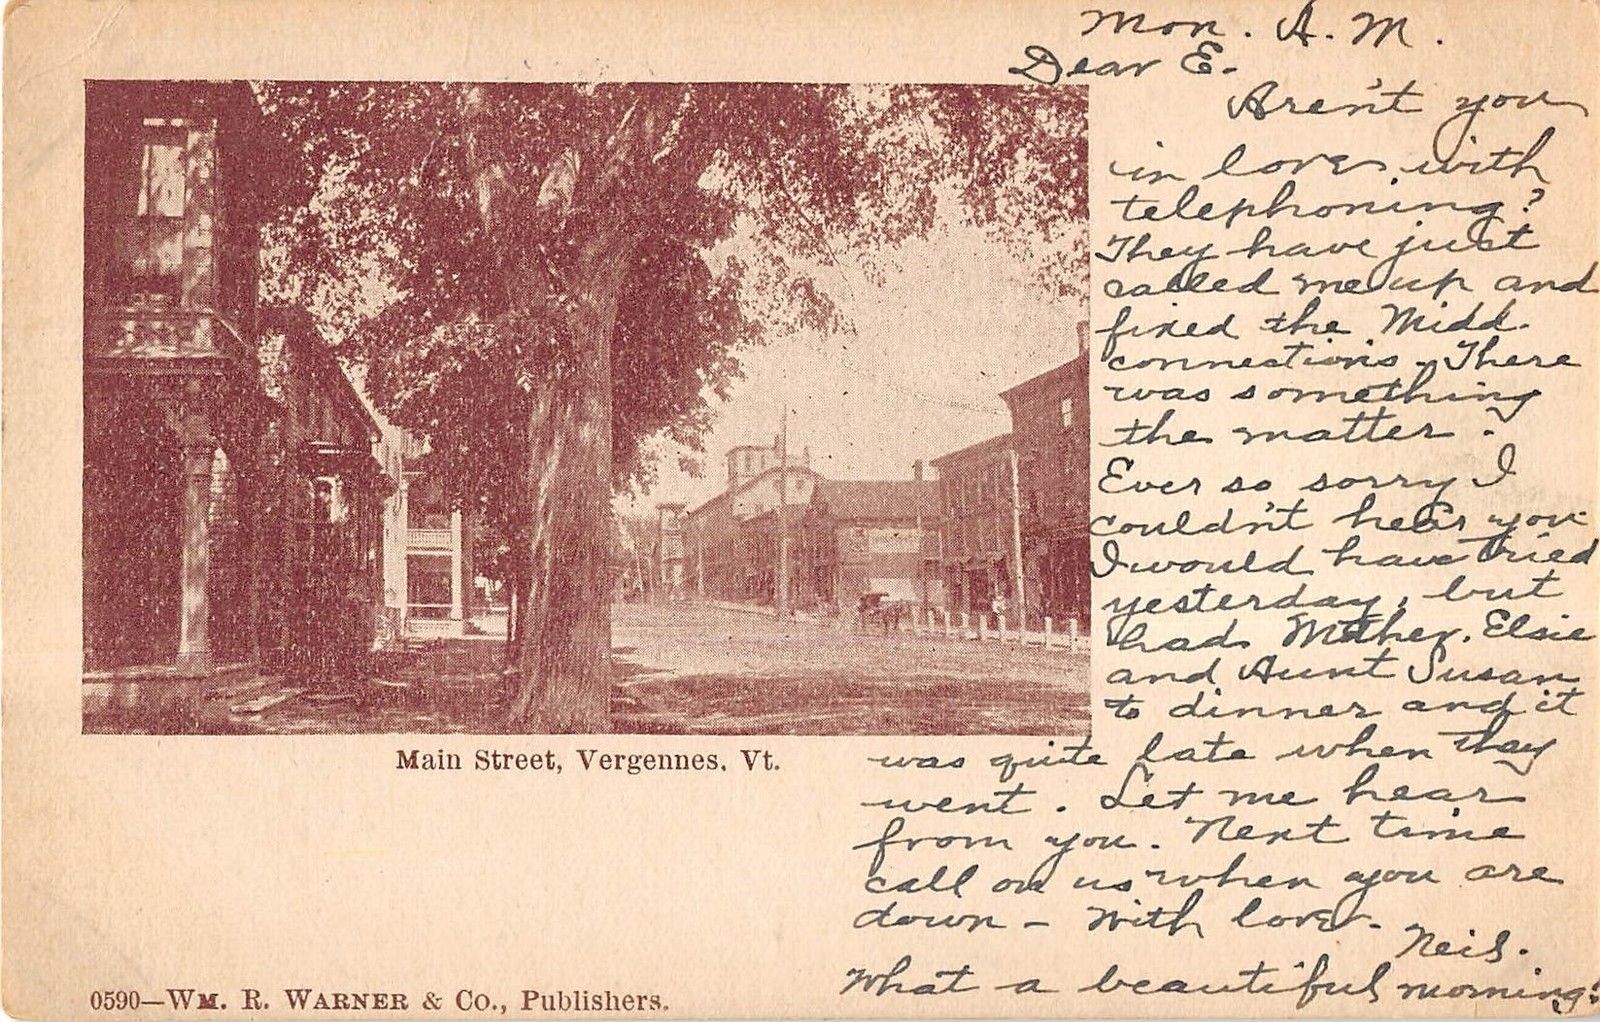 Mon. A. M.
Dear E.
Aren't you
in love with
telephoning?
They have just
called me up and
fixed the Midd.
connections. There
was something
the matter.
Ever so sorry I
couldn't hear you
I would have tried
yesterday, but
had Mother, Elsie
and Aunt Susan
to dinner and it
was quite late when they
went. Let me hear
from you. Next time
call on us when you are
down - With love.
Neil.
What a beautiful morning!
Main Street, Vergennes, Vt.
0590—WM. R. WARNER & CO., Publishers.